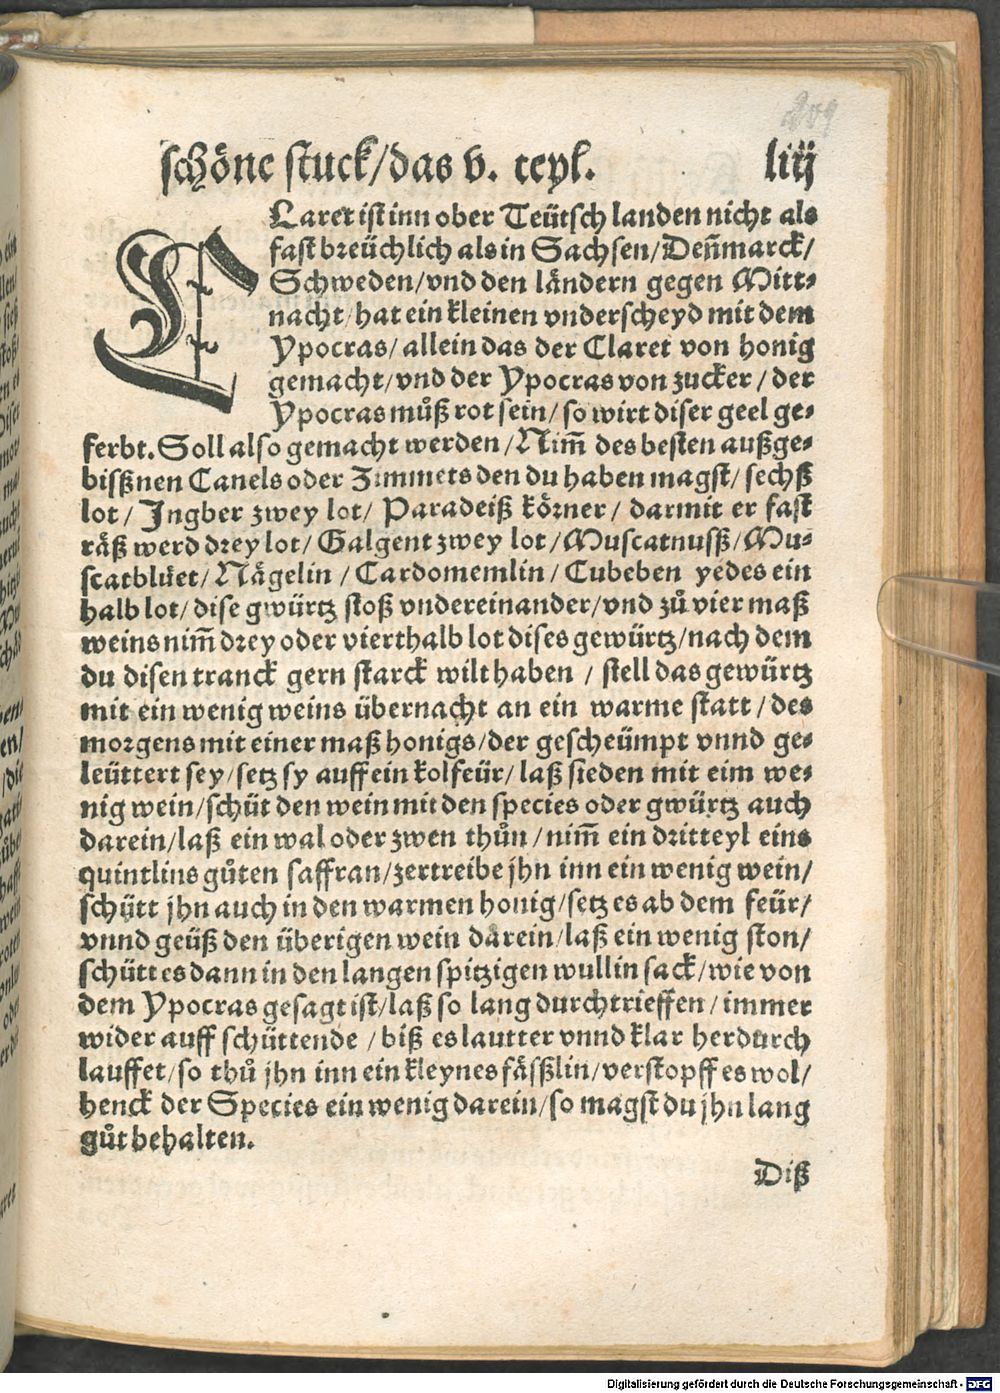 209
schöne stuck/das v. teyl. liij
CLaret ist inn ober Teütsch landen nicht als
fast breüchlich als in Sachsen/Deñmarck/
Schweden/vnd den ländern gegen Mitt⸗
nacht/hat ein kleinen vnderscheyd mit dem
Ypocras/allein das der Claret von honig
gemacht/vnd der Ypocras von zucker/der
Ypocras můß rot sein/so wirt diser geel ge⸗
ferbt. Soll also gemacht werden/Nim̃ des besten außge⸗
bißnen Canels oder Zimmets den du haben magst/sechß
lot/Ingber zwey lot/Paradeiß körner/darmit er fast
räß werd drey lot/Galgent zwey lot/Muscatnuß/Mu⸗
scatblüet/Nägelin/Cardomemlin/Cubeben yedes ein
halb lot/dise gwürtz stoß vndereinander/vnd zů vier maß
weins nim̃ drey oder vierthalb lot dises gewürtz/nach dem
du disen tranck gern starck wilt haben/stell das gewürtz
mit ein wenig weins übernacht an ein warme statt/des
morgens mit einer maß honigs/der gescheümpt vnnd ge⸗
leüttert sey/setz sy auff ein kolfeür/laß sieden mit eim we⸗
nig wein/schüt den wein mit den species oder gwürtz auch
darein/laß ein wal oder zwen thůn/nim̃ ein dritteyl eins
quintlins gůten saffran/zertreibe jhn inn ein wenig wein/
schütt jhn auch in den warmen honig/setz es ab dem feür/
vnnd geüß den überigen wein darein/laß ein wenig ston/
schütt es dann in den langen spitzigen wullin sack/wie von
dem Ypocras gesagt ist/laß so lang durchtrieffen/immer
wider auff schüttende/biß es lautter vnnd klar herdurch
lauffet/so thů jhn inn ein kleynes fäßlin/verstopff es wol/
henck der Species ein wenig darein/so magst du jhn lang
gůt behalten.
Diß
Digitalisierung gefördert durch die Deutsche Forschungsgemeinschaft - DFG